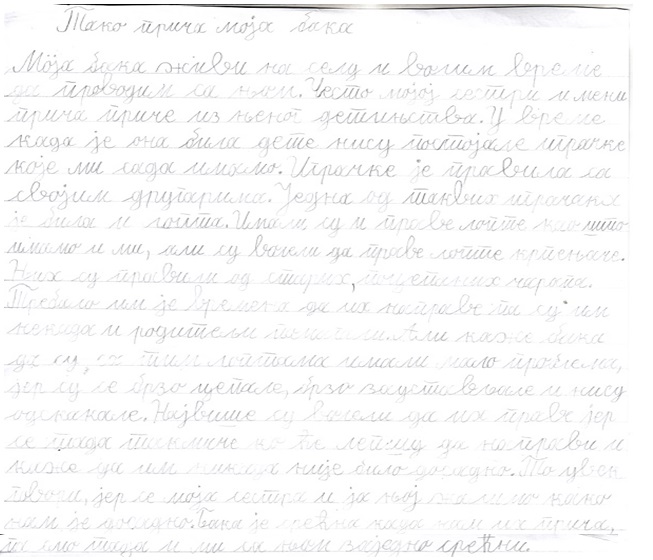 Тако прича моја бака
Моја бака живи на селу и волим време
да проводим са њом. Често мојој сестри и мени
прича приче из њеног детињства. У време
када је она била дете нису постојале играчке
које ми сада имамо. Играчке је правила са
својим другарима. Једна од таквих играчака
је била и лопта. Имали су и праве лопте као што
имамо и ми, али су волели да праве лопте крпењаче.
Њих су правили од старих, поцепаних чарапа.
Требало им је времена да их направе па су им
некада и родитељи помагали. Али каже бака
да су са тим лоптама имали мало проблема,
јер су се брзо цепале, брзо заустављале и нису
одскакале. Највише су волели да их праве јер
се тада такмиче ко ће лепшу да направи и
каже да им никада није било досадно. То увек
говори, јер се моја сестра и ја њој жалимо како
нам је досадно. Бака је срећна када нам их прича,
па смо тада и ми са њом заједно срећни.